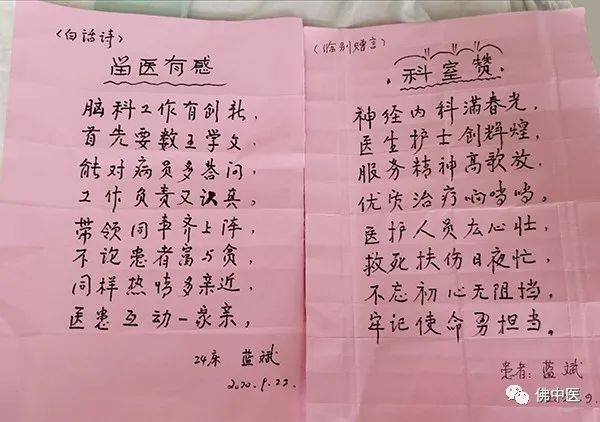 (白话诗)
留医有感
脑科工作有创新,
首先要数王学文,
能对病员多答问,
工作负责又认真。
带领同事齐上阵,
不论患者富与贫,
同样热情多亲近,
医患互动一家亲,
24床 蓝斌
2020.9.22.
(临别赠言)
科室赞
神经内科满春光,
医生护士创辉煌,
服务精神高歌放,
优质治疗响当当。
医护人员
心壮,
救死扶伤日夜忙,
不忘初心无阻挡,
牢记使命勇担当。
患者: 蓝斌
佛中医